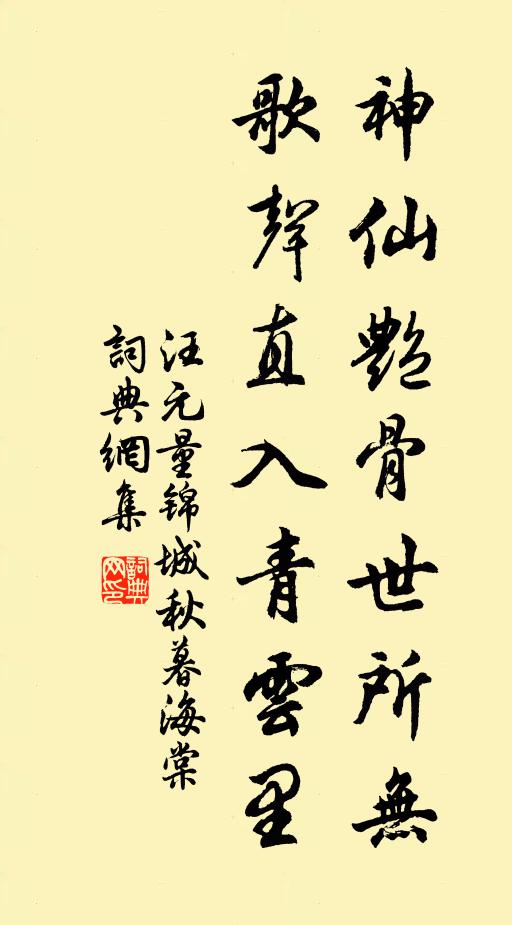 神仙艷骨世所無
歌聲直入青雲里
汪元量錦城秋暮海棠
詞典網集
詞典網印